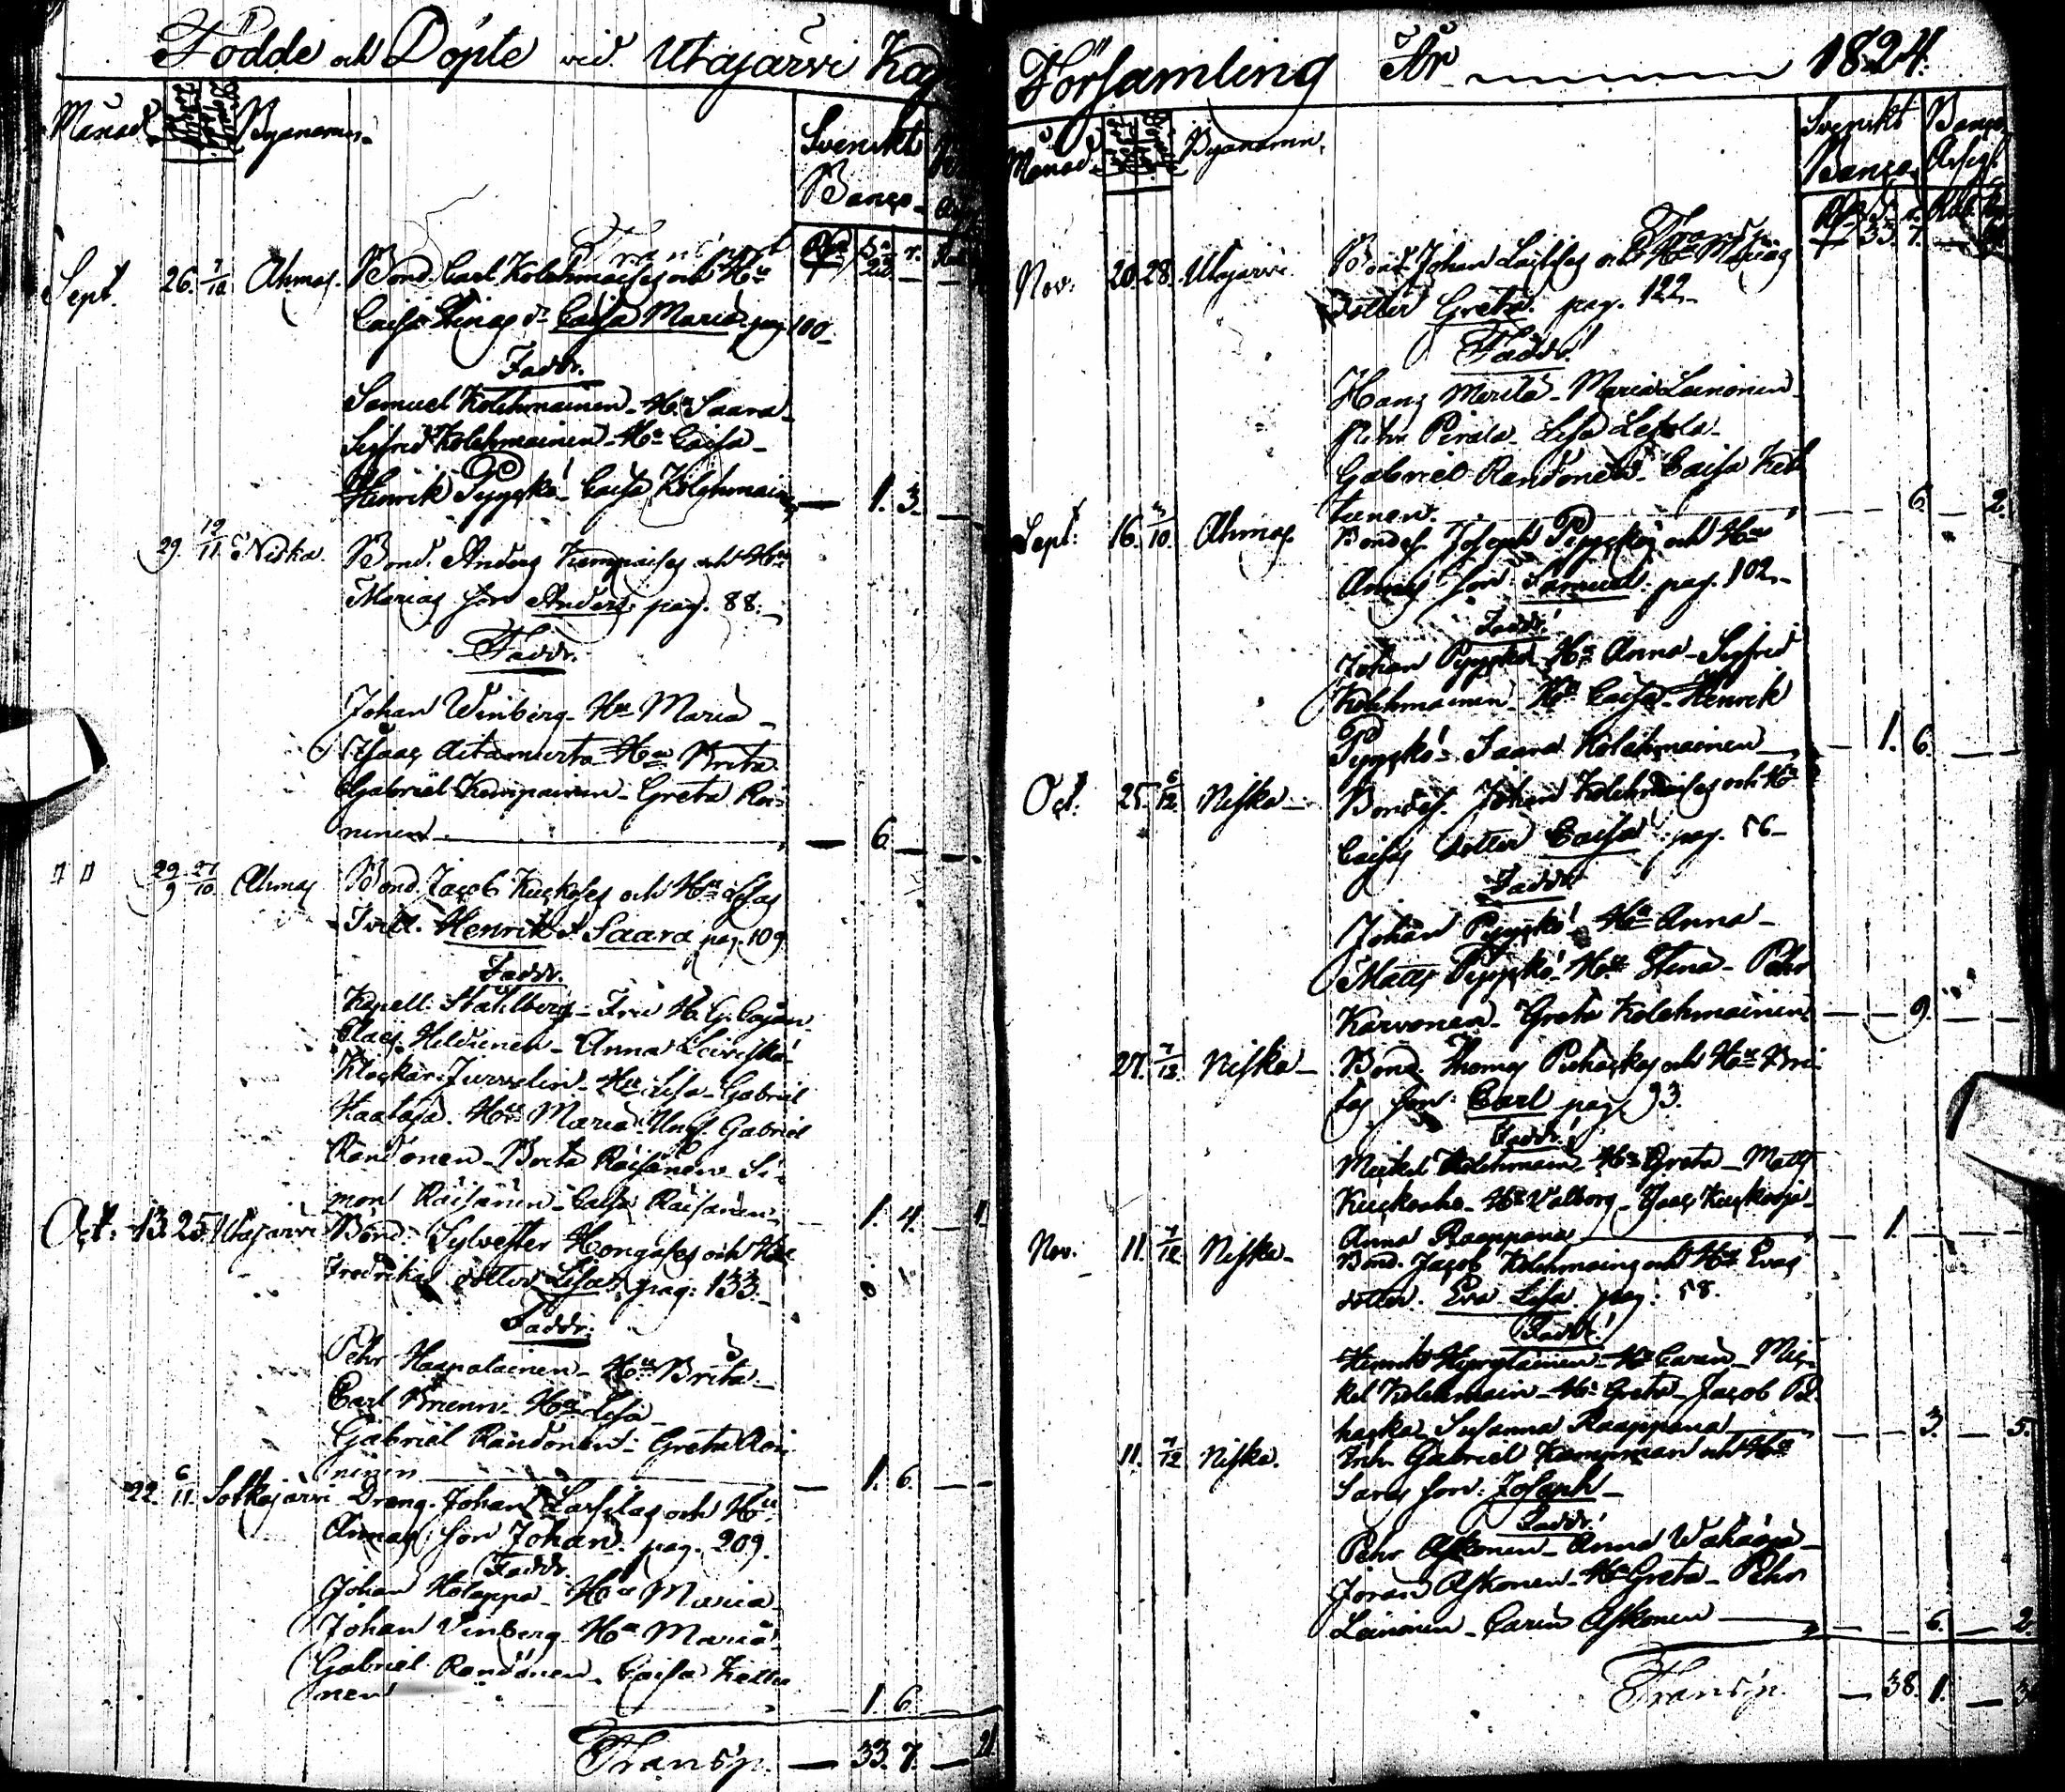 Födde och Döpte vid Utajärvi
Månad. Bynamn.
Svenskt
Banco
Transport
Sept. 26. 7/10 Ahmas. Bond. Carl Kolehmaises och Hu
Caisa d. Caisa Maria. pag. 100.
Faddr.
Samuel Kolehmainen - Hu Saara -
Sigfred Kolehmainen - Hu Caisa -
Henrik Pyyckö - Caisa Kolehmain — 1. 3. —
29. 19/11 Niska. Bond. Anders Kempaises och Hu
Marias son Anders. pag. 88. -
Faddr.
Johan Winberg - Hu Maria -
Isaac Aitamurto - Hu Brita
Gabriel Kempainen - Greta Roi-
ninen — 6. —
29/9 27/10 Ahmas Bond. Jacob Kuckoses och Hu Lisas
Tvill. Henrik & Saara pag. 109
Faddr.
Kapell. Ståhlberg - Fru H. G. Cajan
Claes Heldienen - Anna Leiviskä
Klockar. Jurvelin - Hu Lisa - Gabriel
Kaataja. Hu Maria. Ungk. Gabriel
Rondonen - Brita Räisänen - Si-
mon Räisänen - Caisa Räisänen. — 1. 4. — 1.
Oct. 13. 25. Utajärvi Bond. Sylvester Hongases och Hu
Fredrikas dotter Lisa. pag. 133. -
Faddr.
Pehr Haapalainen - Hu Brita -
Carl Brunn - Hu Lisa -
Gabriel Rondonen - Greta Roi-
ninen — 1. 6. —
22. 6/11. Sotkajärvi Dräng. Johan Lassilas och Hu
Annas son Johan. pag. 209.
Faddr.
Johan Holappa - Hu Maria -
Johan Vinberg - Hu Maria -
Gabriel Rondonen - Caisa Kettu-
nen 1. 6.
Transp. — 33. 7. — 21
Församling År 1824.
Månad. Bynamn.
Svenskt Banco
Banco. Assigt.
Transp. 33. 7.
Nov. 20. 28. Utajärvi. Bond. Johan och Hu Marias
dotter Greta. pag. 122 -
Faddr.
Hans Merilä - Maria Leinonen -
Petter Pirilä - Lisa Leppola -
Gabriel Rondonen - Caisa Ket-
tunen. — 6. — 2.
Sept. 16. 3/10. Ahmas. Bondes. Joseph Pyyckös och Hu
Annas son Samuel. pag. 102. -
Faddr.
Johan Pyyckö - Hu Anna - Sigfred
Kolehmainen - Hu Caisa - Henrik
Pyyckö - Saara Kolehmainen — 1. 6. —
Oct. 25. 6/12 Niska - Bondes. Johan Kolehmaises och Hu
Caisas dotter Caisa pag. 56 -
Faddr.
Johan Pyyckö - Hu Anna -
Matts Pyyckö - Hu Stina - Pehr
Karvonen - Greta Kolehmainen — 9. —
27. 7/12. Niska - Bond. Thomas Puhackas och Hu Bri-
tas son. Carl pag. 93.
Faddr.
Mickel Kolehmain - Hu Greta - Matts
Kuckoaho - Hu Valborg - Isaac Kuckooja -
Anna Raappana — 1. —
Nov. 11. 7/12 Niska - Bond. Jacob Kolehmains och Hu Evas
dotter. Eva Lisa. pag. 58.
Faddr.
Henrik Hyrylainen - Hu Caren - Mic-
kel Kolehmain - Hu Greta - Jacob Pu-
hacka. Susanna Raappana — 3. — 5.
11. 7/12 Niska. Inh. Gabriel Kempman och Hu
Saras son. Joseph -
Faddr.
Pehr Askonen - Anna Wähäoja -
Joran Askonen - Hu Greta - Pehr
Leinonen - Carin Askonen — 6. — 2.
Transp. — 38. 1. —